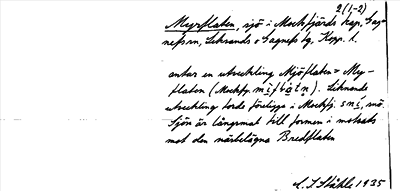 2(1-2)
Myrflaten, sjö i Mockfjärds kap., Gag-
nefs sn, Leksands o Gagnefs tg, Kopp. l.
antar en utveckling Mjöflaten > My-
flaten (Mockfj. Liknande
utveckling torde föreligga i Mockfj. smi, snö.
Sjön är långsmal till formen i motsats
mot den närbelägna Bredflaten
Ståhle 1935